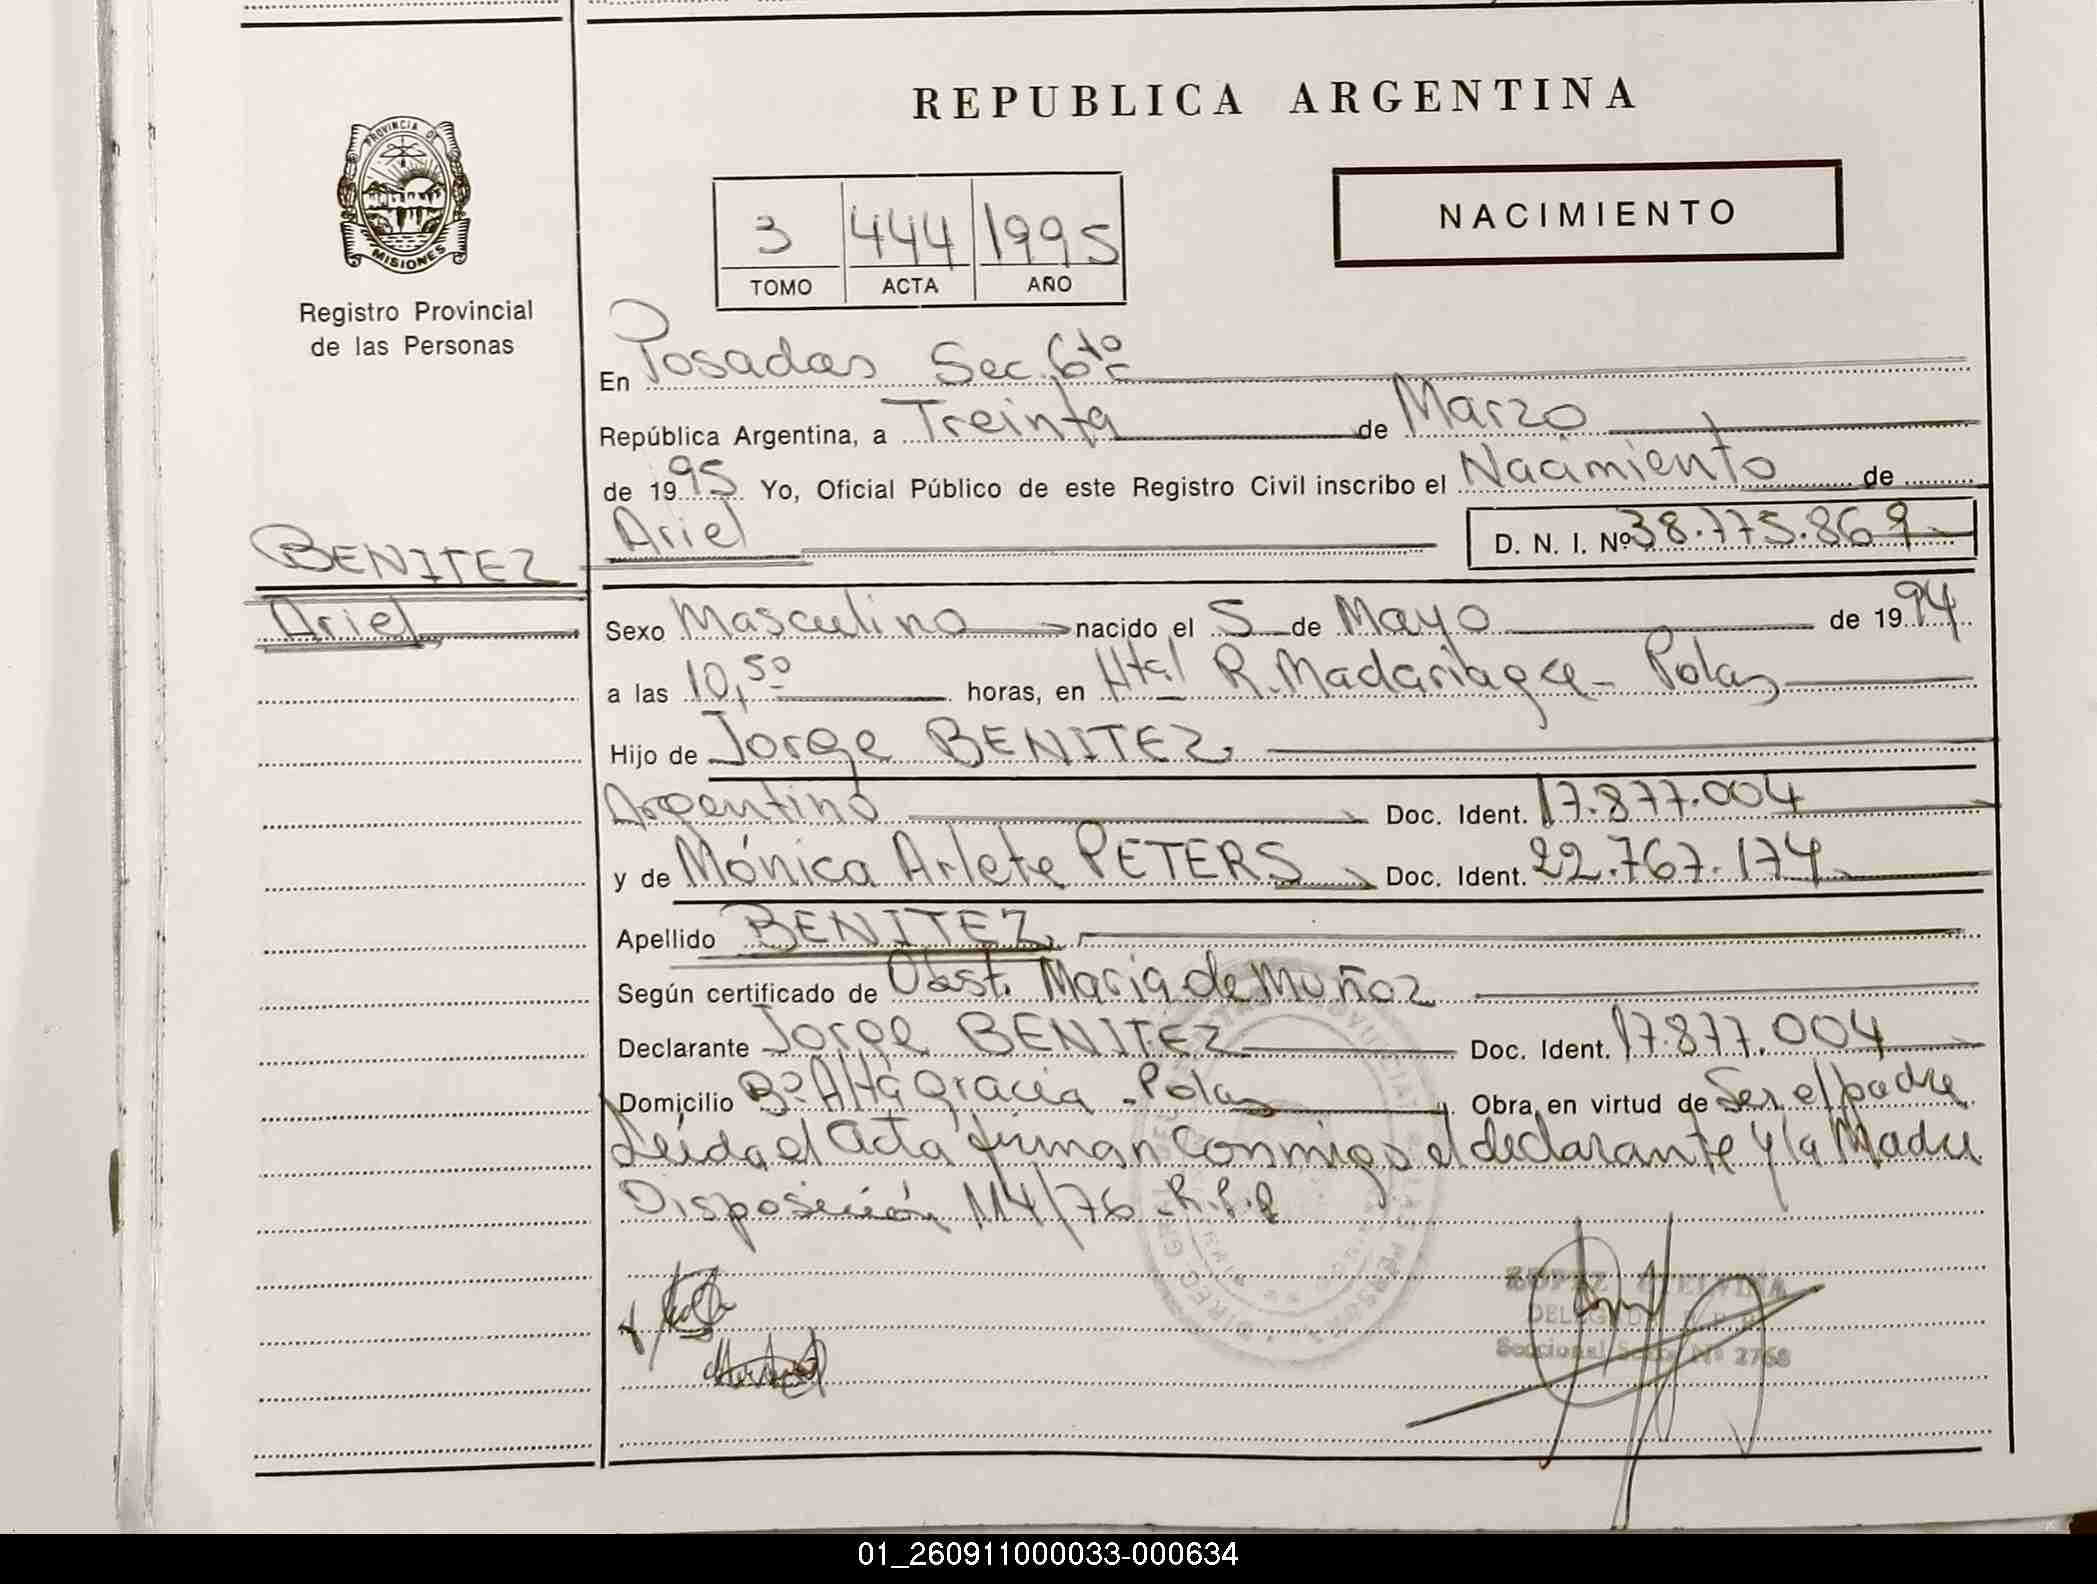 REPUBLICA ARGENTINA
PROVINCIA DE MISIONES
Registro Provincial
de las Personas
3 444 1995
TOMO ACTA AÑO
NACIMIENTO
En Posadas Sec. 6ta
República Argentina, a Treinta de Marzo
de 1995 Yo, Oficial Público de este Registro Civil inscribo el Nacimiento de
BENITEZ
Ariel
Ariel D. N. I. Nº 38.775.869
Sexo Masculino nacido el 5 de Mayo de 1994
a las 10,50 horas, en Htal R. Madariaga - Pdas
Hijo de Jorge BENITEZ
Argentino Doc. Ident. 17.877.004
y de Mónica Arlete PETERS Doc. Ident. 22.767.174
Apellido BENITEZ
Según certificado de Obst. Maria de Muñoz
Declarante Jorge BENITEZ Doc. Ident. 17.877.004
Domicilio Bº Alta gracia - Pdas Obra en virtud de Ser el padre
Leída el acta firman conmigo el declarante y la Madre
Disposición 114/76 - R.P.P
DELEGADA R P P
Seccional Sexta Nº 2768
01_260911000033-000634